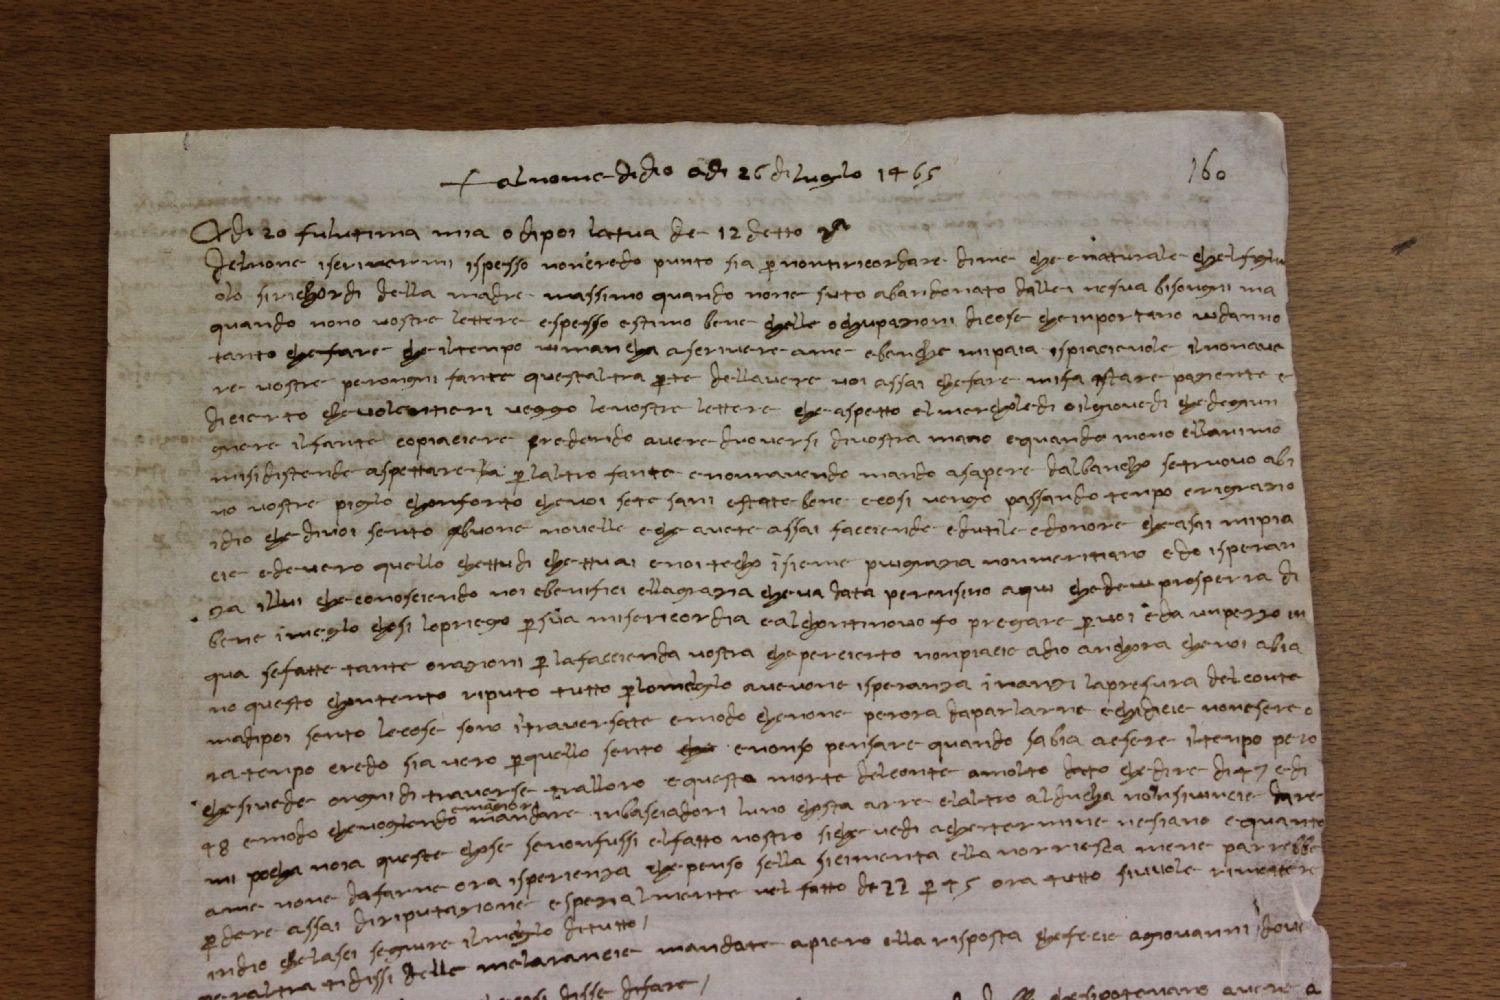 al nome di dio adi 26 di luglo 1465
160
Adi 20 fu lutima mia o dipoi la tua de 12 detto
del none iscrivermi ispesso non credo punto sia per non ti ricordare di me che e naturale chel figlu
olo si richordi della madre massimo quando none suto abandonato dallei ne sua bisongni ma
quando nono vostre lettere espesso estimo bene chelle ochupazioni di cose che inportano vi danno
tanto che fare che il tempo vi mancha a scrivere a me e benche mi paia ispiacievole il non ave
re vostre per ongni fante questaltra parte dellavere voi assai che fare mi fa stare paziente e
di cierto che volentieri veggo le vostre lettere che aspetto el mercholedi o il giovedi che degiun
gnere il fante co piaciere credendo avere duo versi di vostra mano e quando inono ellanimo
mi si distende aspettarella per laltro fante e nonnavendo mando a sapere dal bancho se truovo abi
no vostre piglo chonforto che voi sete sani e state bene e cosi vengo passando tenpo e rigrazio
idio che di voi sento buone novelle e che avete assai facciende e dutile e donore che asai mi pia
cie ed e vero quello chettu di chettu ai e noi techo isieme piu grazia non meritiano ed o isperan
za illui che conosciendo noi e benifici ella grazia che va data per ensino a qui che de
bene i meglo chosi lo priego per sua misericordia e al chontinovo fo pregare per voi e da un pezzo in
qua se fatte tante orazioni per la faccienda vostra che per cierto non piacie a dio anchora che voi abia
no questo chontento riputo tutto per lo meglo avevone isperanza inanzi la presura del conte
ma dipoi sento le cose sono itraversate e modo che none per ora da parlarne e chi dicie non esere o
ra tenpo credo sia vero per quello sento e non so pensare quando sabia a esere il tenpo pero
che si vede ongni di traverse tralloro e questa morte del conte a molto dato che dire di 47 e di
48 e modo che voglendo mandare inbasciadori luno chosta a rre e laltro al ducha non si vincie dare
e magiori
mi pocha noia queste chose se non fussi el fatto nostro siche vedi a che termine ne siano e quanto
a me none da farne ora isperienza che penso sella si cimenta ella non riescta mene parrebbe
perdere assai di riputazione e spezialmente nel fatto de 22 per 45 ora tutto si vuole rimettere
in dio che lasci seguire il meglo di tutto /
per altra ti dissi delle melarancie mandate a piero ella risposta che fecie a giovanni dove